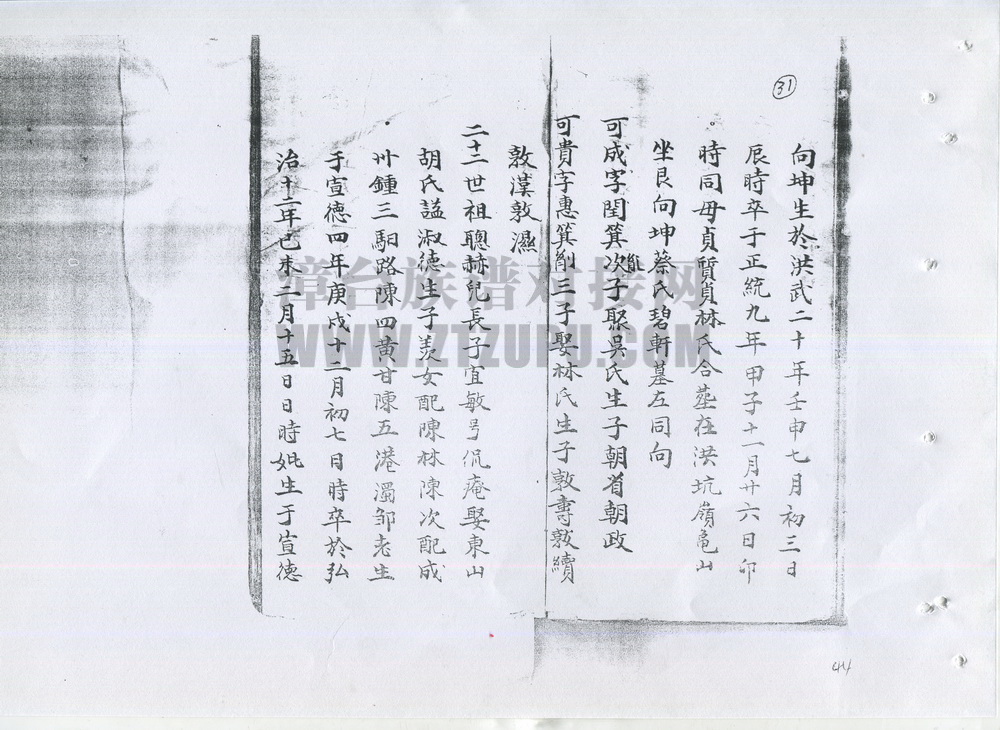 31
向坤生於洪武二十年壬申七月初三日
辰時卒于正統九年甲子十一月廿六日卯
時同母貞質貞林氏合塟在洪坑嶺龜山
坐艮向坤蔡氏碧軒墓左同向
可成字閏箕次子娶吳氏生子朝肯朝政
可貴字惠箕削三子娶林氏生子敦壽敦續
敦漢敦濕
二十二世祖聰赫兒長子宜敏号侃庵娶東山
胡氏諡淑德生子羨女配陳林陳次配成
卅鍾三駉路陳四黄甘陳五港濁邹老生
于宣德四年庚戌十二月初七日時卒於弘
治十二年己未二月十五日日時妣生于宣德
漳台族谱对接网
WWW.ZTZUPU.COM
44